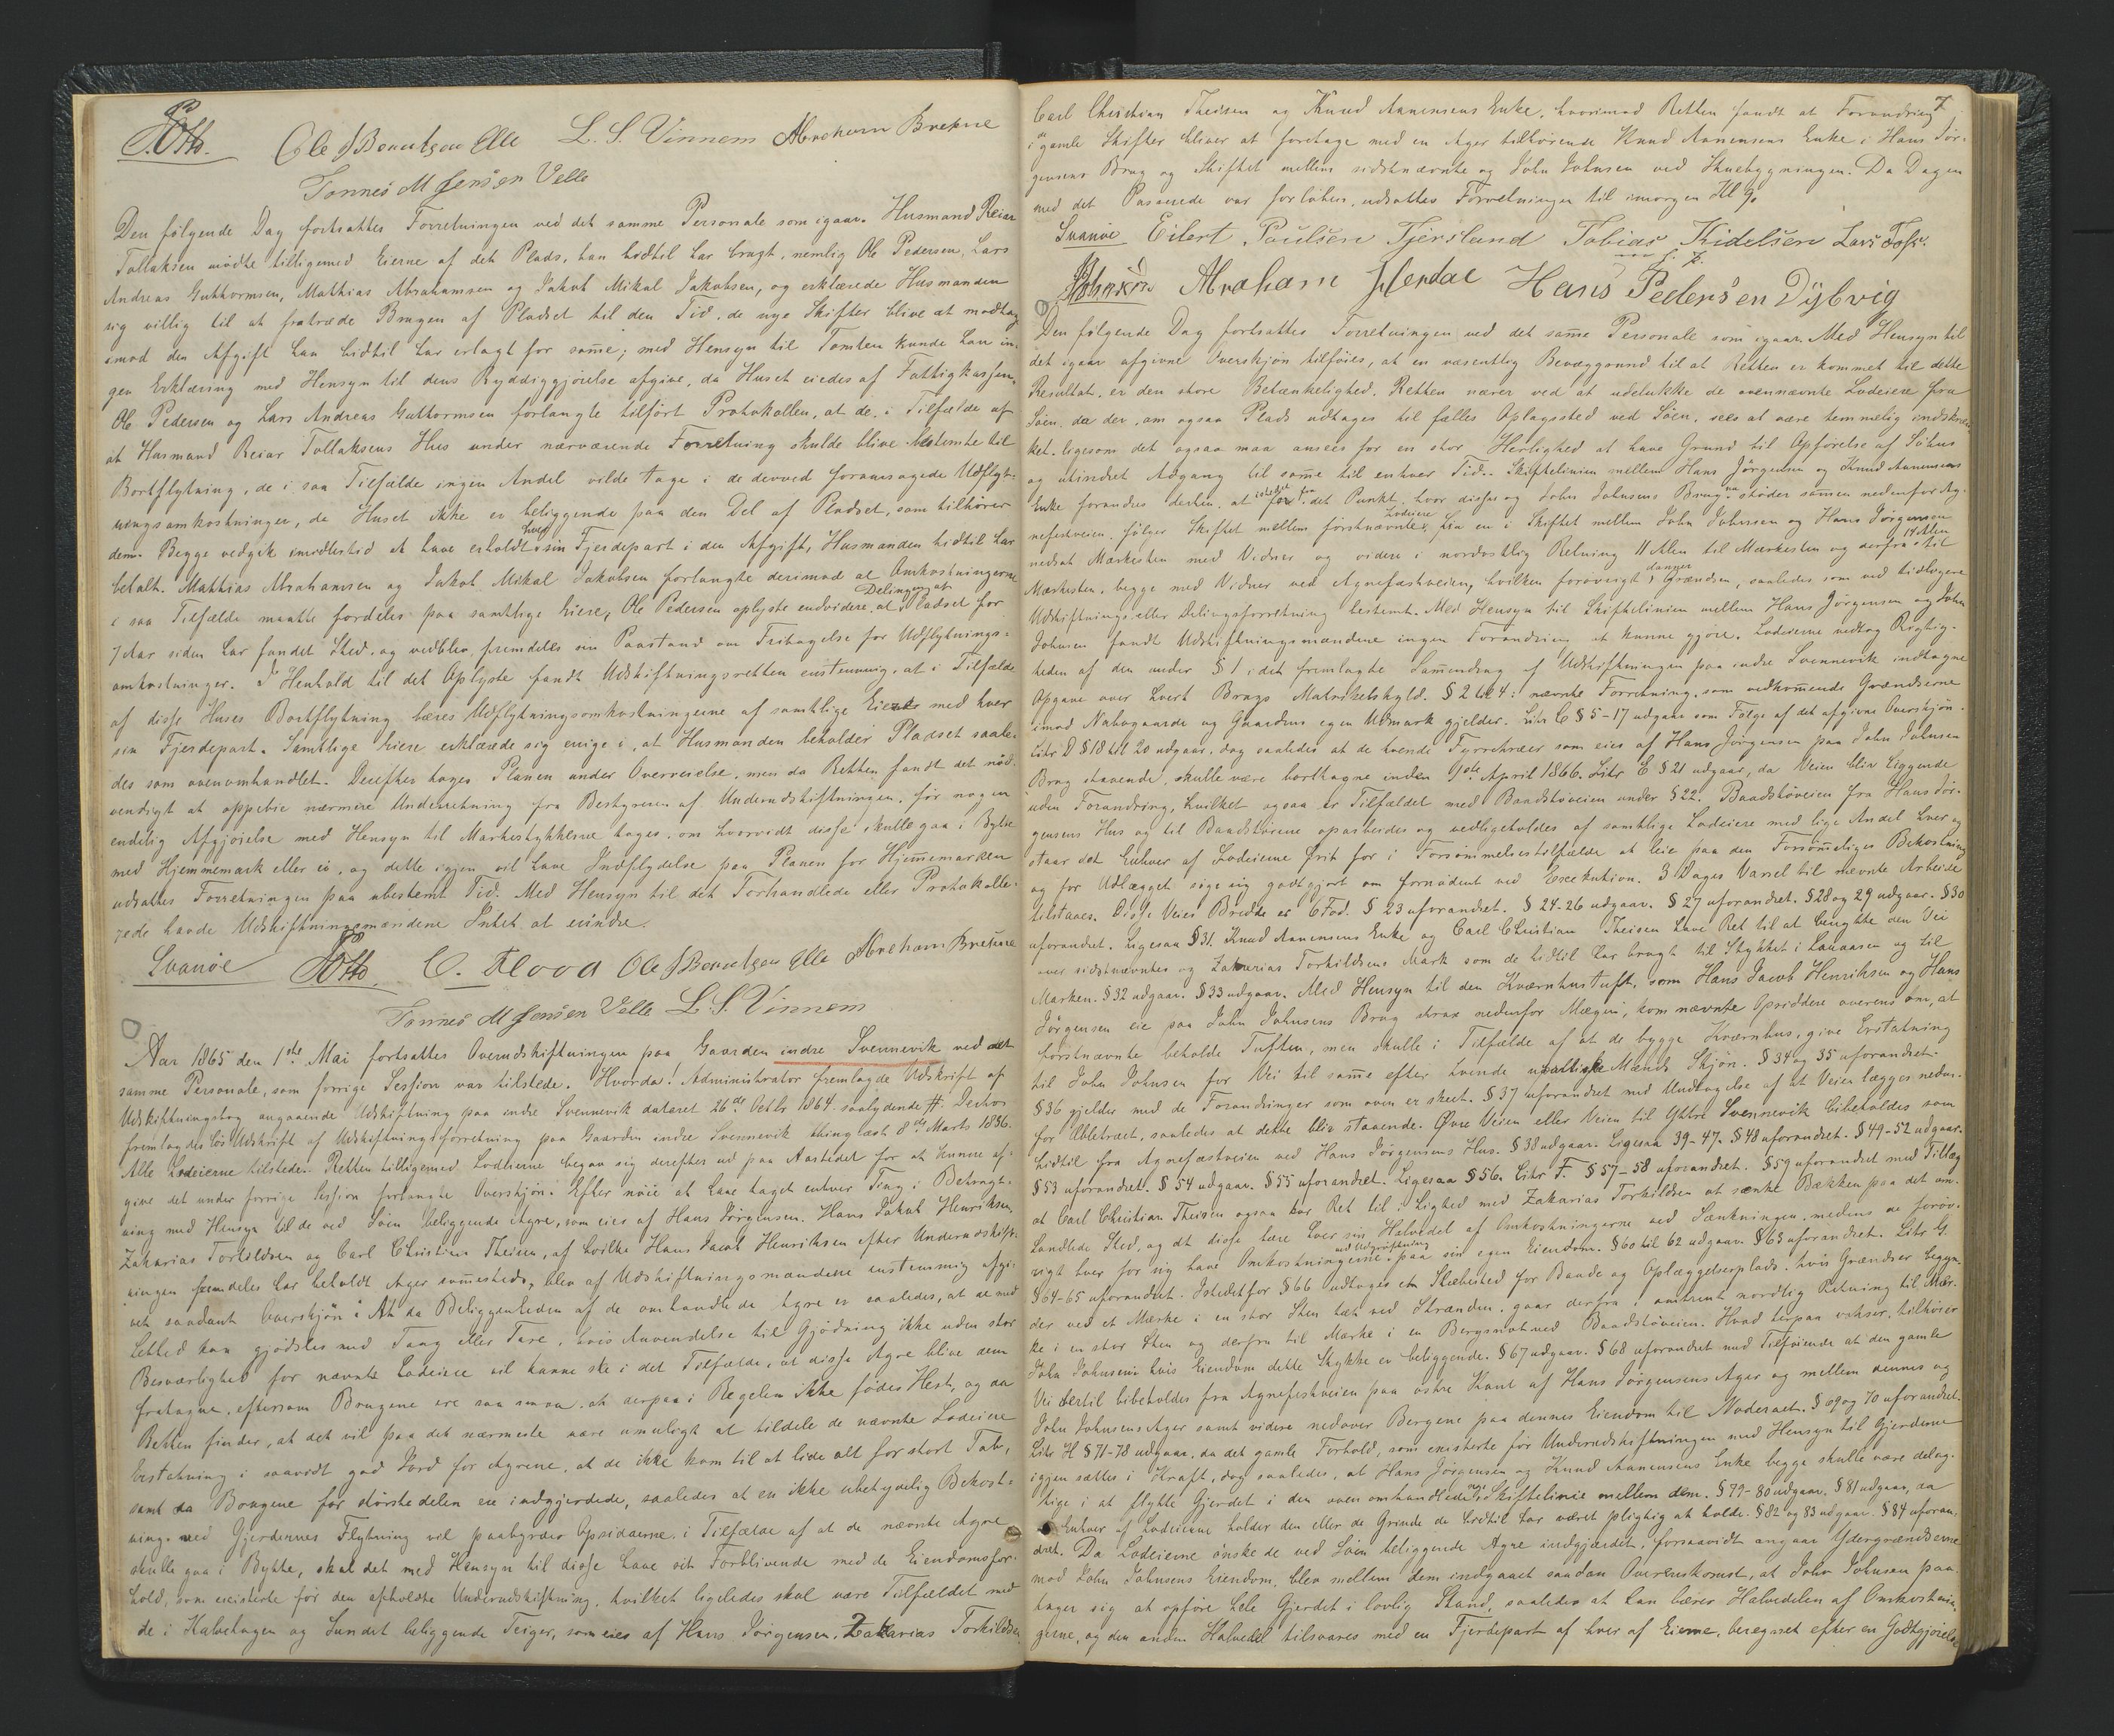 Otto. Ole J Berentsen Elle L. S. Vinnem Abraham Brekne
Tønnes M Jensen Velle
Den følgende Dag fortsattes Forretningen ved det samme Personale som igaar. Husmand Reiar
Tollaksen mødte tilligemed Eierne af det Plads, han hidtil har brugt, nemlig Ole Pedersen, Lars
Andreas Guttormsen, Mathias Abrahamsen og Jakob Mikal Jakobsen, og erklærede Husmanden
sig villig til at fratræde Brugen af Pladset til den Tid, de nye Skifter blive at modtage
imod den Afgift han hidtil har erlagt for samme; med Hensyn til Tomten kunde han in-
gen Erklæring med Hensyn til dens Ryddiggjørelse afgive, da Huset eiedes af Fattigkassen.
Ole Pedersen og Lars Andreas Guttormsen forlangte tilført Protokollen, at de, i Tilfælde af
at Husmand Reiar Tollaksens Hus under nærværende Forretning skulde blive bestemte til
Bortflytning, de i saa Tilfælde ingen Andel vilde tage i de derved foraarsagede Udflyt-
ningsomkostninger, da Huset ikke er beliggende paa den Del af Pladset, som tilhører
dem. Begge vedgik imidlertid at have erholdt hver sin Fjerdepart i den Afgift, Husmanden hidtil har
betalt. Mathias Abrahamsen og Jakob Mikal Jakobsen forlangte derimod at Omkostningerne
i saa Tilfælde maatte fordeles paa samtlige Eiere, Ole Pedersen oplyste endvidere, at Delingen af Pladset for
7 Aar siden har fundet Sted, og vedblev fremdeles sin Paastand om Fritagelse for Udflytnings-
omkostninger. I Henhold til det Oplyste fandt Udskiftningsretten enstemmig, at i Tilfælde
af disse Huses Bortflytning bæres Udflytningsomkostningerne af samtlige Eiere med hver
sin Fjerdepart. Samtlige Eiere erklærede sig enige i, at Husmanden beholder Pladset saale-
des som ovenomhandlet. Derefter toges Planen under Overveielse, men da Retten fandt det nød-
vendigt at oppebie nærmere Underretning fra Bestyreren af Underudskiftningen, før nogen
endelig Afgjørelse med Hensyn til Markestykkerne toges, om hvorvidt disse skulle gaa i Bytte
med Hjemmemark eller ei, og dette igjen vil have Indflydelse paa Planen for Hjemmemarken
udsattes Forretningen paa ubestemt Tid. Med Hensyn til det Forhandlede eller Protokolle-
rede havde Udskiftningsmændene Intet at erindre.
Svanøe Otto. C. Flood Ole J Berentsen Elle Abraham Brekne
Tønnes M Jensen Velle L. S. Vinnem
Aar 1865 den 1ste Mai fortsattes Overudskiftningen paa Gaarden indre Svennevik ved det
samme Personale, som forrige Session var tilstede. Hvorda! Administrator fremlagde Udskrift af
Udskiftningstog angaaende Udskiftning paa indre Svennevik dateret 26de Octbr 1864 saalydende #. Derhos
fremlagdes løs Udskrift af Udskiftningsforretning paa Gaarden indre Svennevik thinglæst 8de Marts 1836.
Alle Lodeierne tilstede. Retten tilligemed Lodeierne begav sig derefter ud paa Aastedet for at kunne af-
give det under forrige Session forlangte Overskjøn. Efter nøie at have taget enhver Ting i Betragt-
ning med Hensyn til de ved Søen beliggende Agre, som eies af Hans Jørgensen, Hans Jakob Henriksen,
Zakarias Torkildsen og Carl Christian Theisen, af hvilke Hans Jacob Henriksen efter Underudskift-
ningen fremdeles har beholdt Ager sammesteds, blev af Udskiftningsmændene enstemmig afgi-
vet saadant Overskjøn: At da Beliggenheden af de omhandlede Agre er saaledes, at de med
Lethed kan gjødsles med Tang eller Tare, hvis Anvendelse til Gjødning ikke uden stor
Besværlighed for nævnte Lodeiere vil kunne ske i det Tilfælde, at disse Agre blive dem
fratagne, eftersom Brugene ere saa smaa, at derpaa i Regelen ikke fødes Hest, og da
Retten finder, at det vil paa det nærmeste være umuligt at tildele de nævnte Lodeiere
Erstatning i saavidt god Jord for Agrene, at de ikke kom til at lide alt for stort Tab,
samt da Brugene for størstedelen ere indgjerdede, saaledes at en ikke ubetydelig Bekost-
ning ved Gjerdernes Flytning vil paabyrdes Opsidderne i Tilfælde af at de nævnte Agre
skulle gaa i Bytte, skal det med Hensyn til disse have sit Forblivende med de Eiendomsfor-
hold, som existerte før den afholdte Underudskiftning, hvilket ligeledes skal være Tilfældet med
de i Kalvehagen og Sundet beliggende Teiger, som eies af Hans Jørgensen, Zakarias Torkildsen,
7
Carl Christian Theisen og Knud Aanensens Enke, hvorimod Retten fandt at Forandring
i de gamle Skifter bliver at foretage med en Ager tilhørende Knud Aanensens Enke i Hans Jør-
gensens Brug og Skiftet mellem sidstnævnte og John Johnsen ved Huebygningen. Da Dagen
med det Passerede var forløben, udsattes Forretningen til imorgen Kl 9.
Svanøe Eilert Poulsen Fjersland Tobias Kidelsen Lars Foss.
Johnsen Abraham Hordal Hans Pedersen Dybvig
Den følgende Dag fortsattes Forretningen ved det samme Personale som igaar. Med Hensyn til
det igaar afgivne Overskjøn tilføies, at en væsentlig Bevæggrund til at Retten er kommet til dette
Resultat, er den store Betænkelighed, Retten nærer ved at udelukke de ovennævnte Lodeiere fra
Søen, da der, om ogsaa Plads udtages til fælles Oplagssted ved Søen, sees at være temmelig indskræn-
ket, ligesom det ogsaa maa ansees for en stor Herlighed at have Grund til Opførelse af Søhus
og uhindret Adgang til samme til enhver Tid. Skiftelinien mellem Hans Jørgensen og Knud Aanensens
Enke forandres derhen, at istedetfor fra det Punkt, hvor disse og John Johnsens Brug støder sammen nedenfor Ag-
nefestveien, følger Skiftet mellem førstnævnte Lodeiere fra en i Skiftet mellem John Johnsen og Hans Jørgensen
nedsat Mærkesten med Vidner og videre i nordostlig Retning 11 Alen til Mærkesten og derfra 14 Alen til
Mærkesten, begge med Vidner ved Agnefæstveien, hvilken forøvrigt danner Grændsen, saaledes som ved tidligere
Udskiftnings eller Delingsforretning bestemt. Med Hensyn til Skiftelinien mellem Hans Jørgensen og John
Johnsen fandt Udskiftningsmændene ingen Forandring at kunne gjøre. Lodeierne vedtog Rigtig-
heden af den under § 1 i det fremlagte Sammendrag af Udskiftningen paa indre Svennevik indtagne
Opgave over hvert Brugs Matrikelskyld. § 2 til 4 i nævnte Forretning, som vedkommende Grændserne
imod Nabogaarde og Gaardens egen Udmark gjelder. Litr C § 5-17 udgaar som Følge af det afgivne Overskjøn.
Litr D § 18 til 20 udgaar, dog saaledes at de tvende Fyrretræer som eies af Hans Jørgensen paa John Johnsens
Brug staaende, skulle være borttagne inden 1ste April 1866. Litr E § 21 udgaar, da Veien blir liggende
uden Forandring, hvilket ogsaa er Tilfældet med Baadstøveien under § 22. Baadstøveien fra Hans Jør-
gensens Hus og til Baadstøerne oparbeides og vedligeholdes af samtlige Lodeiere med lige Andel hver og
staar det Enhver af Lodeierne frit for i Forsømmelsestilfælde at leie paa den Forsømmeliges Bekostning
og for Udlægget sige sig godtgjort om fornødent ved Execution. 3 Dages Varsel til nævnte Arbeide
tilstaaes. Disse Veies Bredde er 6 Fod. § 23 uforandret. § 24-26 udgaar. § 27 uforandret. § 28 og 29 udgaar. § 30
uforandret. Ligesaa § 31. Knud Aanensens Enke og Carl Christian Theisen have Ret til at benytte den Vei
over sidstnævntes og Zakarias Torkildsens Mark som de hidtil har brugt til Stykket i Lauaasen og til
Marken. § 32 udgaar. § 33 udgaar. Med Hensyn til den Kværnhustuft, som Hans Jacob Henriksen og Hans
Jørgensen eie paa John Johnsens Brug strax nedenfor Mægin, kom nævnte Opsiddere overens om, at
førstnævnte beholde Tuften, men skulle i Tilfælde af at de bygge Kværnhus, give Erstatning
til John Johnsen for Vei til samme efter tvende uvillige Mænds Skjøn. § 34 og 35 uforandret.
§ 36 gjelder med de Forandringer som oven er skeet. § 37 uforandret med Undtagelse af at Veien lægges neden-
for Æbletræet, saaledes at dette blir staaende. Øvre Veien eller Veien til Yttre Svennevik bibeholdes som
hidtil fra Agnefæstveien ved Hans Jørgensens Hus. § 38 udgaar. Ligesaa 39-47. § 48 uforandret. § 49-52 udgaar.
§ 53 uforandret. § 54 udgaar. § 55 uforandret. Ligesaa § 56. Litr F. § 57-58 uforandret. § 59 uforandret med Tillæg
at Carl Christian Theisen ogsaa har Ret til i Lighed med Zakarias Torkildsen at sænke Bækken paa det om-
handlede Sted, og at disse bære hver sin Halvdel af Omkostningerne ved Sænkningen, medens de forøv-
rigt hver for sig have Omkostningerne ved Udgrøftning paa sin egen Eiendom. § 60 til 62 udgaar. § 63 uforandret. Litr G.
§ 64-65 uforandret. Istedetfor § 66 udtages et Skibssted for Baade og Oplæggelsesplads, hvis Grændser begyn-
der ved et Mærke i en stor Sten tæt ved Stranden, gaar derfra i omtrent nordlig Retning til Mær-
ke i en stor Sten og derfra til Mærke i en Bergsnat ved Baadstøveien. Hvad derpaa voxer, tilhører
John Johnsen i hvis Eiendom dette Stykke er beliggende. § 67 udgaar. § 68 uforandret med Tilføiende at den gamle
Vei dertil bibeholdes fra Agnefestveien paa østre Kant af Hans Jørgensens Ager og mellem dennes og
John Johnsens Ager samt videre nedover Bergene paa dennes Eiendom til Noderaet. § 69 og 70 uforandret.
Litr H § 71-78 udgaar, da det gamle Forhold, som existerte før Underudskiftningen med Hensyn til Gjerderne
igjen sættes i Kraft, dog saaledes, at Hans Jørgensen og Knud Aanensens Enke begge skulle være delag-
tige i at flytte Gjerdet i den oven omhandlede nye Skiftelinie mellem dem. § 79-80 udgaar. § 81 udgaar, da
Enhver af Lodeierne holder den eller de Grinde de hidtil har været pligtig at holde. § 82 og 83 udgaar. § 84 uforan-
dret. Da Lodeierne ønske de ved Søen beliggende Agre indgjærdet, forsaavidt angaar Ydergrændserne
mod John Johnsens Eiendom, blev mellem dem indgaaet saadan Overenskomst, at John Johnsen paa-
tager sig at opføre hele Gjerdet i lovlig Stand, saaledes at han bærer Halvdelen af Omkostnin-
gerne, og den anden Halvdel tilsvares med en Fjerdepart af hver af Eierne, beregnet efter en Godtgjørelse